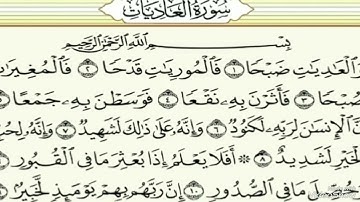 سُورَةُ العَادِيَاتِ
بِسْمِ اللَّهِ الرَّحْمَٰنِ الرَّحِيمِ
وَالْعَادِيَاتِ ضَبْحًا ١ فَالْمُورِيَاتِ قَدْحًا ٢ فَالْمُغِيرَاتِ
صُبْحًا ٣ فَأَثَرْنَ بِهِ نَقْعًا ٤ فَوَسَطْنَ بِهِ جَمْعًا
نَّ الْإِنسَانَ لِرَبِّهِ لَكَنُودٌ ٦ وَإِنَّهُ عَلَىٰ ذَٰلِكَ لَشَهِيدٌ ٧ وَإِنَّهُ لِحُبِّ
الْخَيْرِ لَشَدِيدٌ ٨ ۞ أَفَلَا يَعْلَمُ إِذَا بُعْثِرَ مَا فِي الْقُبُورِ
وَحُصِّلَ مَا فِي الصُّدُورِ ١٠ إِنَّ رَبَّهُم بِهِمْ يَوْمَئِذٍ لَّخَبِيرٌ